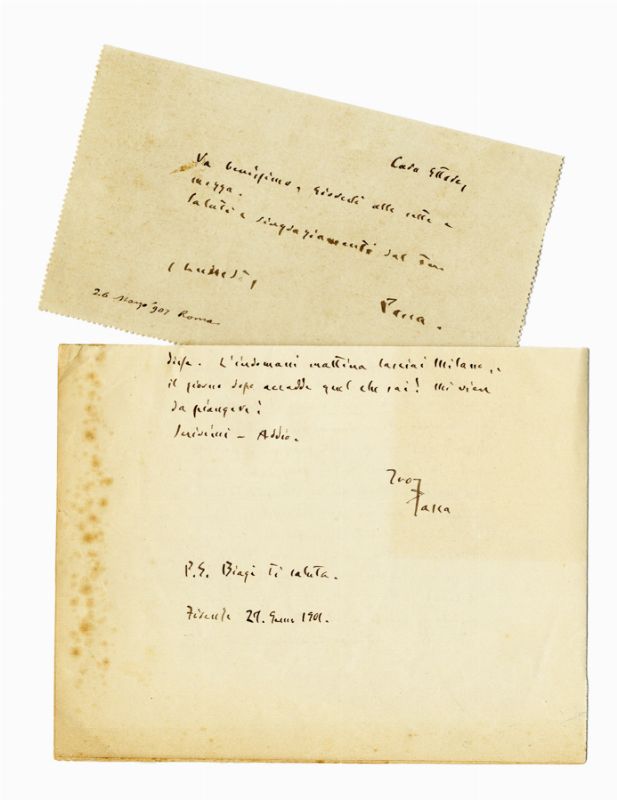 Caro Ettore,
Va benissimo, giovedì alle sette e
mezza.
Saluti e ringraziamenti dal tuo
(Lunedì)
26 Marzo 907 Roma
L'indomani mattina lasciai Milano,
il giorno dopo accadde quel che sai! Mi viene
da piangere!
Scrivimi – Addio.
Tuo
P.S. Biagi ti saluta.
Firenze 27. 1901.